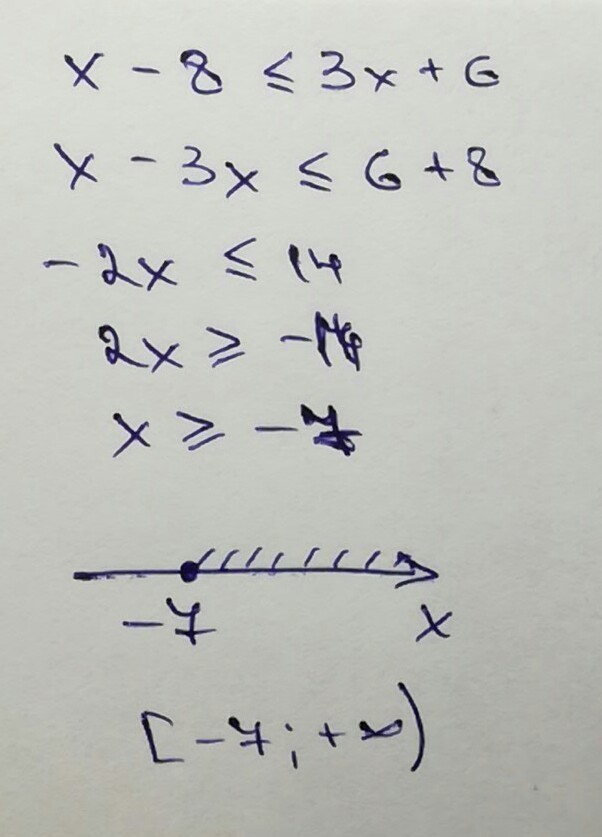 x - 8 ≤ 3x + 6
x - 3x ≤ 6 + 8
-2x ≤ 14
2x ≥ -14
x ≥ -7
-7 x
[-7; +∞)